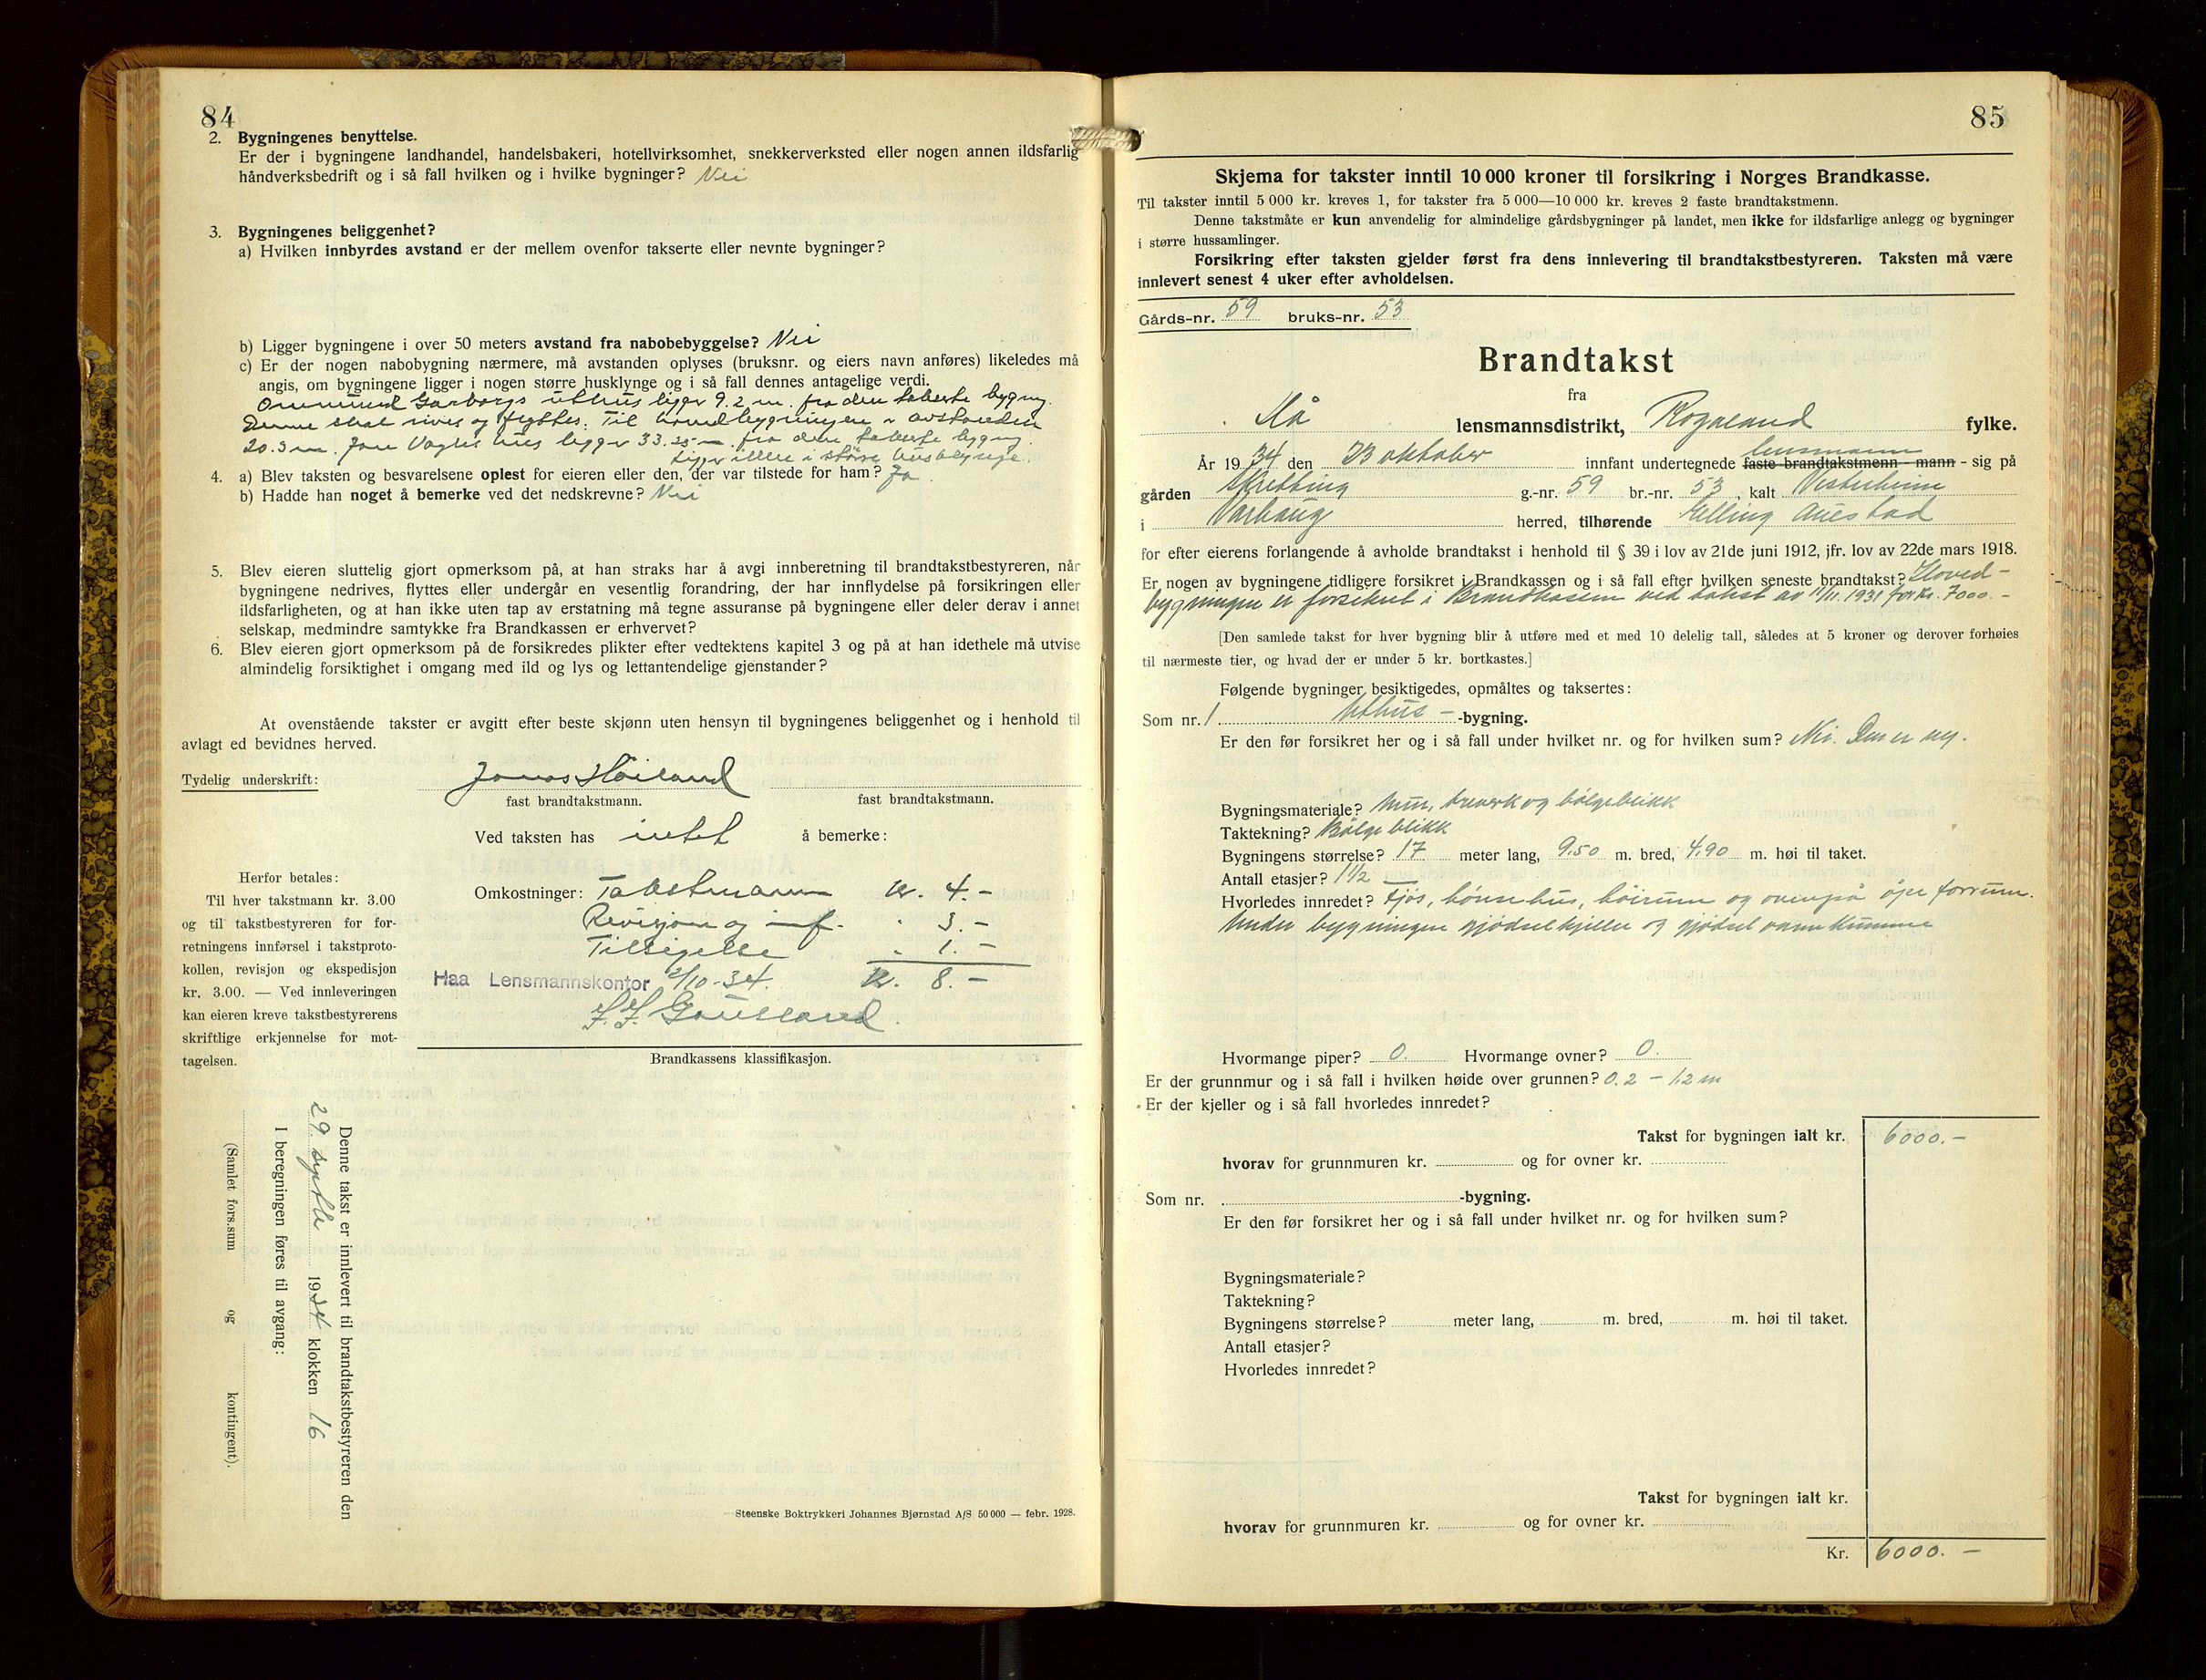 84
2. Bygningenes benyttelse.
Er der i bygningene landhandel, handelsbakeri, hotellvirksomhet, snekkerverksted eller nogen annen ildsfarlig
håndverksbedrift og i så fall hvilken og i hvilke bygninger? Nei
3. Bygningenes beliggenhet?
a) Hvilken innbyrdes avstand er der mellem ovenfor takserte eller nevnte bygninger?
b) Ligger bygningene i over 50 meters avstand fra nabobebyggelse? Nei
c) Er der nogen nabobygning nærmere, må avstanden oplyses (bruksnr. og eiers navn anføres) likeledes må
angis, om bygningene ligger i nogen større husklynge og i så fall dennes antagelige verdi.
Ommund Garborgs uthus ligger 9.2 m. fra den takserte bygning.
Denne skal rives og flyttes. Til hovedbygningen er avstanden
20.3 m. Jone Vagles hus ligger 33.25 m. fra den takserte bygning.
Ligger ikke i større husklynge.
4. a) Blev taksten og besvarelsene oplest for eieren eller den, der var tilstede for ham? Ja.
b) Hadde han noget å bemerke ved det nedskrevne? Nei
5. Blev eieren sluttelig gjort opmerksom på, at han straks har å avgi innberetning til brandtakstbestyreren, når
bygningene nedrives, flyttes eller undergår en vesentlig forandring, der har innflydelse på forsikringen eller
ildsfarligheten, og at han ikke uten tap av erstatning må tegne assuranse på bygningene eller deler derav i annet
selskap, medmindre samtykke fra Brandkassen er erhvervet?
6. Blev eieren gjort opmerksom på de forsikredes plikter efter vedtektens kapitel 3 og på at han idethele må utvise
almindelig forsiktighet i omgang med ild og lys og lettantendelige gjenstander?
At ovenstående takster er avgitt efter beste skjønn uten hensyn til bygningenes beliggenhet og i henhold til
avlagt ed bevidnes herved.
Tydelig underskrift: Jonas Høiland
fast brandtakstmann. fast brandtakstmann.
Ved taksten has intet å bemerke:
Herfor betales:
Til hver takstmann kr. 3.00
og til takstbestyreren for for-
retningens innførsel i takstproto-
kollen, revisjon og ekspedisjon
kr. 3.00. — Ved innleveringen
kan eieren kreve takstbestyrerens
skriftlige erkjennelse for mot-
tagelsen.
Omkostninger: Takstmann kr. 4.-
Revisjon og inf. " 3.-
Tilsigelse " 1.-
Haa Lensmannskontor /10-34. kr. 8.-
Brandkassens klassifikasjon.
Denne takst er innlevert til brandtakstbestyreren den
29 1934 klokken 16
I beregningen føres til avgang:
(Samlet fors.sum og kontingent).
Steenske Boktrykkeri Johannes Bjørnstad A/S 50 000 — febr. 1928.
85
Skjema for takster inntil 10 000 kroner til forsikring i Norges Brandkasse.
Til takster inntil 5 000 kr. kreves 1, for takster fra 5 000—10 000 kr. kreves 2 faste brandtakstmenn.
Denne takstmåte er kun anvendelig for almindelige gårdsbygninger på landet, men ikke for ildsfarlige anlegg og bygninger
i større hussamlinger.
Forsikring efter taksten gjelder først fra dens innlevering til brandtakstbestyreren. Taksten må være
innlevert senest 4 uker efter avholdelsen.
Gårds-nr. 59 bruks-nr. 53
Brandtakst
fra
Hå lensmannsdistrikt, Rogaland fylke.
År 1934 den 23 oktober innfant undertegnede faste brandtakstmenn - mann - sig på
lensmann
gården g.-nr. 59 br.-nr. 53, kalt Vesterheim
i Varhaug herred, tilhørende Elling Auestad
for efter eierens forlangende å avholde brandtakst i henhold til § 39 i lov av 21de juni 1912, jfr. lov av 22de mars 1918.
Er nogen av bygningene tidligere forsikret i Brandkassen og i så fall efter hvilken seneste brandtakst? Hoved-
bygningen er forsikret i Brandkassen ved takst av 11/11. 1931 for kr. 7000.-
[Den samlede takst for hver bygning blir å utføre med et med 10 delelig tall, således at 5 kroner og derover forhøies
til nærmeste tier, og hvad der er under 5 kr. bortkastes.]
Følgende bygninger besiktigedes, opmåltes og taksertes:
Som nr. 1 Uthus - -bygning.
Er den før forsikret her og i så fall under hvilket nr. og for hvilken sum? Nei. Den er ny.
Bygningsmateriale? Mur, treverk og bølgeblikk
Taktekning? Bølgeblikk
Bygningens størrelse? 17 meter lang, 9.50 m. bred, 4.90 m. høi til taket.
Antall etasjer? 1 1/2
Hvorledes innredet? Fjøs, hønsehus, høirum og ovenpå åpe forrum.
Under bygningen gjødselkjeller og gjødselvannkumme
Hvormange piper? 0. Hvormange ovner? 0.
Er der grunnmur og i så fall i hvilken høide over grunnen? 0.2 - 1.2 m
Er der kjeller og i så fall hvorledes innredet?
Takst for bygningen ialt kr. 6000.-
hvorav for grunnmuren kr. og for ovner kr.
Som nr. -bygning.
Er den før forsikret her og i så fall under hvilket nr. og for hvilken sum?
Bygningsmateriale?
Taktekning?
Bygningens størrelse? meter lang, m. bred, m. høi til taket.
Antall etasjer?
Hvorledes innredet?
Takst for bygningen ialt kr.
hvorav for grunnmuren kr. og for ovner kr.
Kr. 6000.-